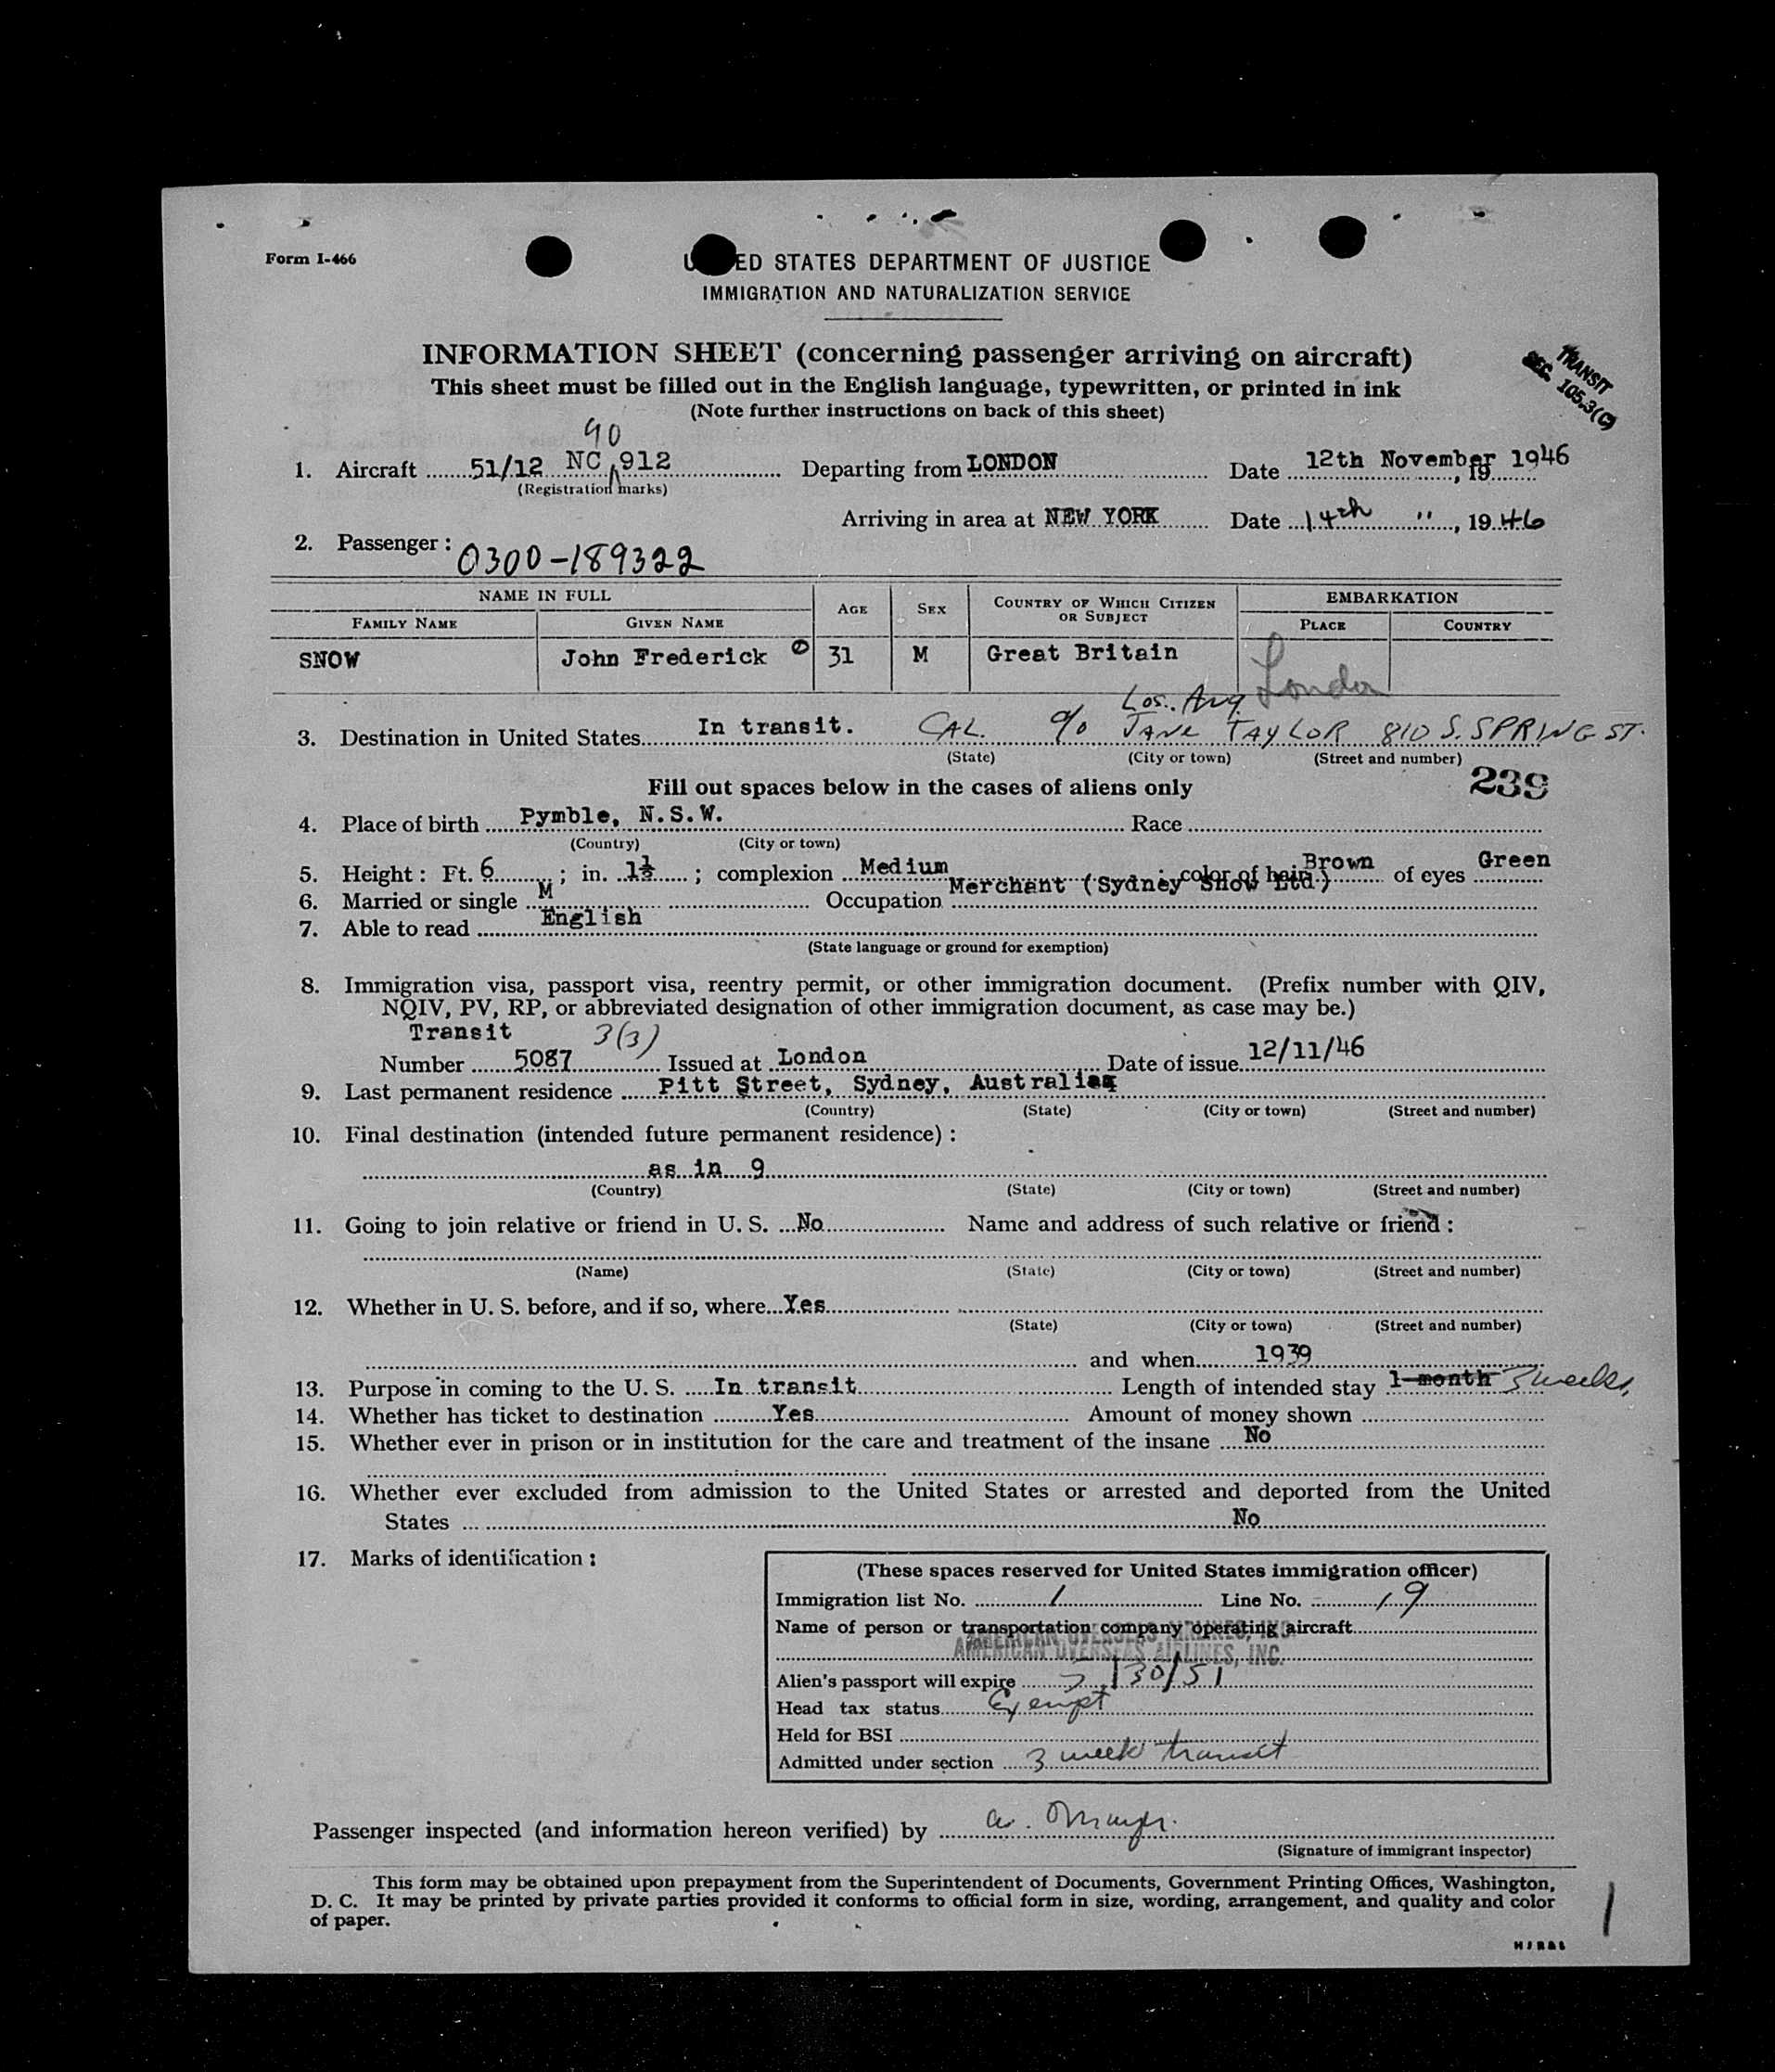 Form I-466
ED STATES DEPARTMENT OF JUSTICE
IMMIGRATION AND NATURALIZATION SERVICE
INFORMATION SHEET (concerning passenger arriving on aircraft)
This sheet must be filled out in the English language, typewritten, or printed in ink
(Note further instructions on back of this sheet)
TRANSIT
SEC. 105.3(C)
90
1. Aircraft 51/12 NC 912 Departing from LONDON Date 12th November, 19 1946
(Registration marks)
Arriving in area at NEW YORK Date 14th ", 1946
2. Passenger: 0300-189322
NAME IN FULL AGE SEX COUNTRY OF WHICH CITIZEN OR SUBJECT EMBARKATION
FAMILY NAME GIVEN NAME PLACE COUNTRY
SNOW John Frederick 31 M Great Britain London
Los. Ang.
3. Destination in United States In transit. CAL. c/o JANE TAYLOR 810 S. SPRING ST.
(State) (City or town) (Street and number)
Fill out spaces below in the cases of aliens only 239
4. Place of birth Pymble, N.S.W. Race
(Country) (City or town)
5. Height: Ft. 6; in. 1½; complexion Medium; color of hair Brown of eyes Green
6. Married or single M Occupation Merchant (Sydney Snow Ltd)
7. Able to read English
(State language or ground for exemption)
8. Immigration visa, passport visa, reentry permit, or other immigration document. (Prefix number with QIV,
NQIV, PV, RP, or abbreviated designation of other immigration document, as case may be.)
Transit 3(3)
Number 5087 Issued at London Date of issue 12/11/46
9. Last permanent residence Pitt Street, Sydney, Australia
(Country) (State) (City or town) (Street and number)
10. Final destination (intended future permanent residence):
as in 9
(Country) (State) (City or town) (Street and number)
11. Going to join relative or friend in U. S. No Name and address of such relative or friend:
(Name) (State) (City or town) (Street and number)
12. Whether in U. S. before, and if so, where Yes
(State) (City or town) (Street and number)
and when 1939
13. Purpose in coming to the U. S. In transit Length of intended stay 1 month 3 weeks,
14. Whether has ticket to destination Yes Amount of money shown
15. Whether ever in prison or in institution for the care and treatment of the insane No
16. Whether ever excluded from admission to the United States or arrested and deported from the United
States No
17. Marks of identification:
(These spaces reserved for United States immigration officer)
Immigration list No. 1 Line No. 19
Name of person or transportation company operating aircraft
AMERICAN OVERSEAS AIRLINES, INC.
AMERICAN OVERSEAS AIRLINES, INC.
Alien's passport will expire /30/51
Head tax status Exempt
Held for BSI
Admitted under section 3 week transit
Passenger inspected (and information hereon verified) by
(Signature of immigrant inspector)
This form may be obtained upon prepayment from the Superintendent of Documents, Government Printing Offices, Washington,
D. C. It may be printed by private parties provided it conforms to official form in size, wording, arrangement, and quality and color
of paper.
1